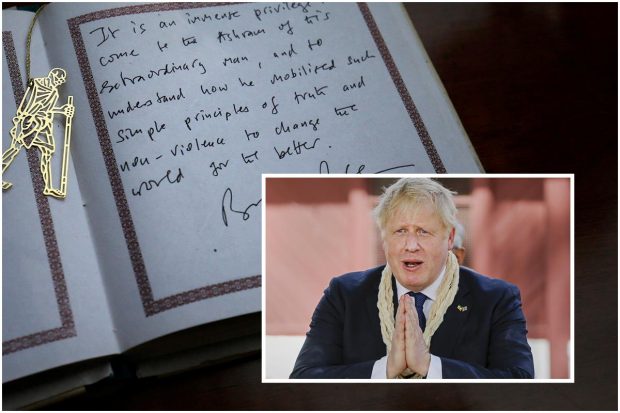 It is an immense privilege
come to the Ashram of this
extraordinary man, and to
understand how he mobilised such
simple principles of truth and
non-violence to change the
world for the better.